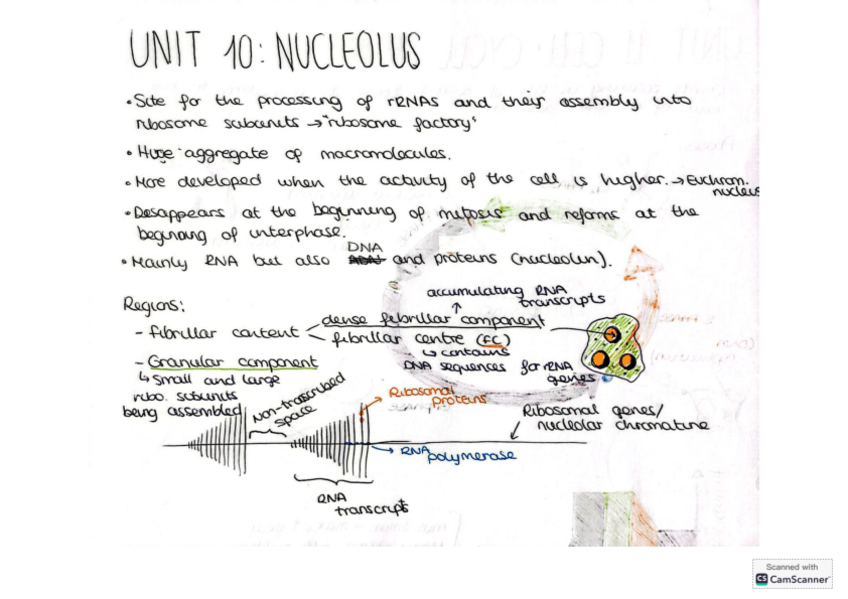 UNIT 10: NUCLEOLUS
• Site for the processing of rRNAs and their assembly into
ribosome subunits → "ribosome factory"
• Huge aggregate of macromolecules.
• More developed when the activity of the cell is higher. → Euchrom.
nucleus
• Desappears at the beginning of mitosis and reforms at the
beginning of interphase.
DNA
• Mainly RNA but also and proteins (nucleolin).
accumulating RNA
transcripts
Regions:
dense fibrillar component
- fibrillar content
fibrillar centre (FC)
↳ contains
DNA sequences for rRNA
genes
- Granular component
↳ Small and large
ribo. subunits
being assembled
Non-transcribed
space
Ribosomal
proteins
Ribosomal genes/
nucleolar chromatine
RNA
polymerase
RNA
transcripts
Scanned with
CS CamScanner